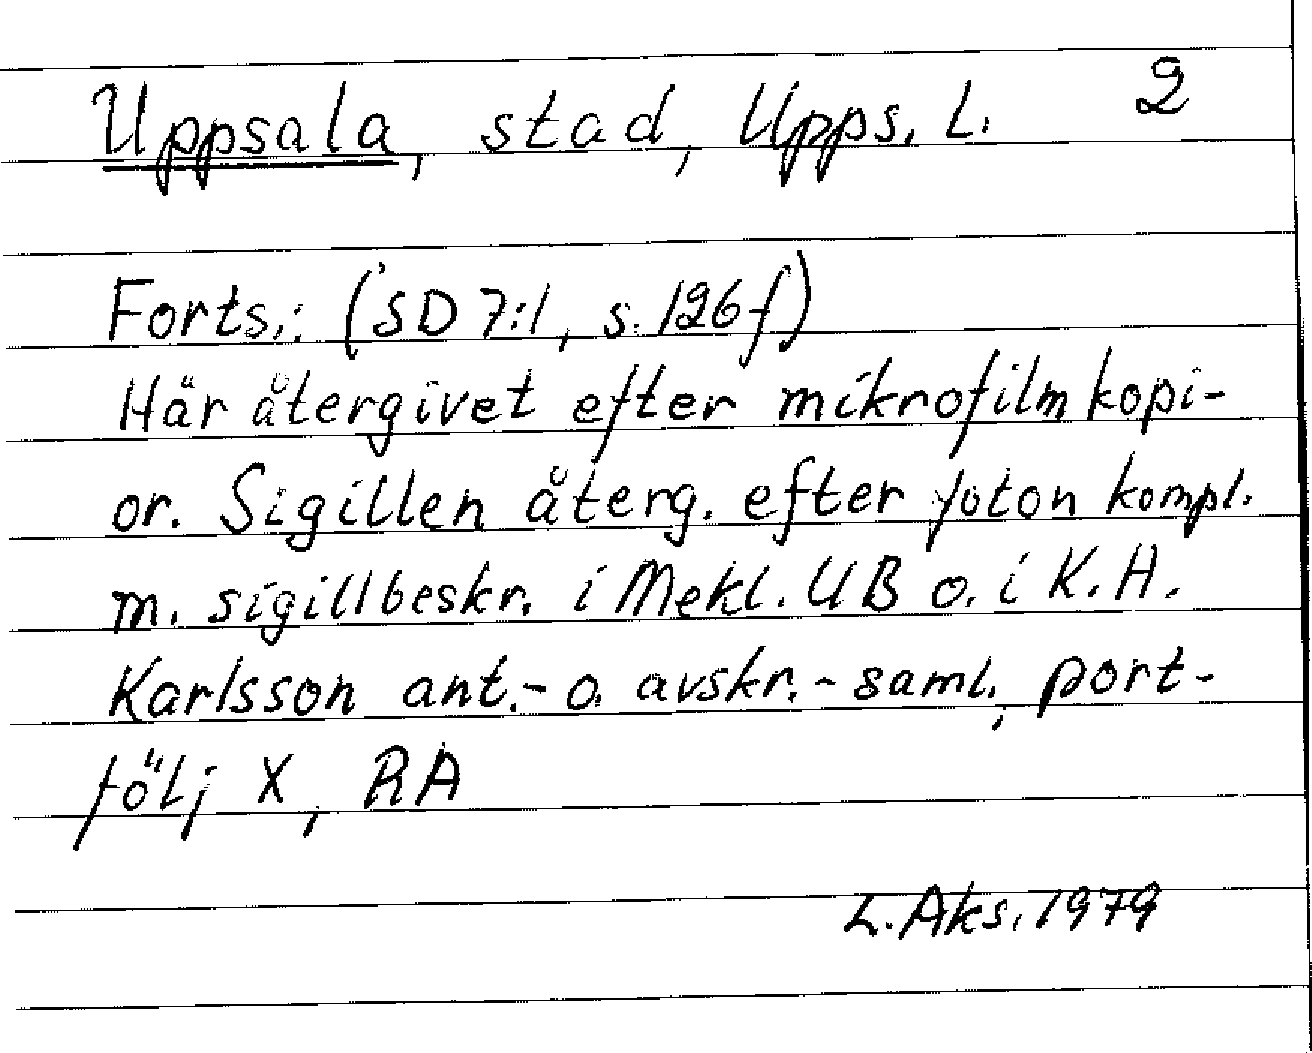 Uppsala, stad, Upps. L. 2
Forts.: (SD 7:1, s. 126 f)
Här återgivet efter mikrofilmkopi-
or. Sigillen återg. efter foton kompl.
m. sigillbeskr. i Mekl. UB o. i K. H.
Karlsson ant.- o. avskr.- saml., port-
följ X, RA
L. Aks. 1979